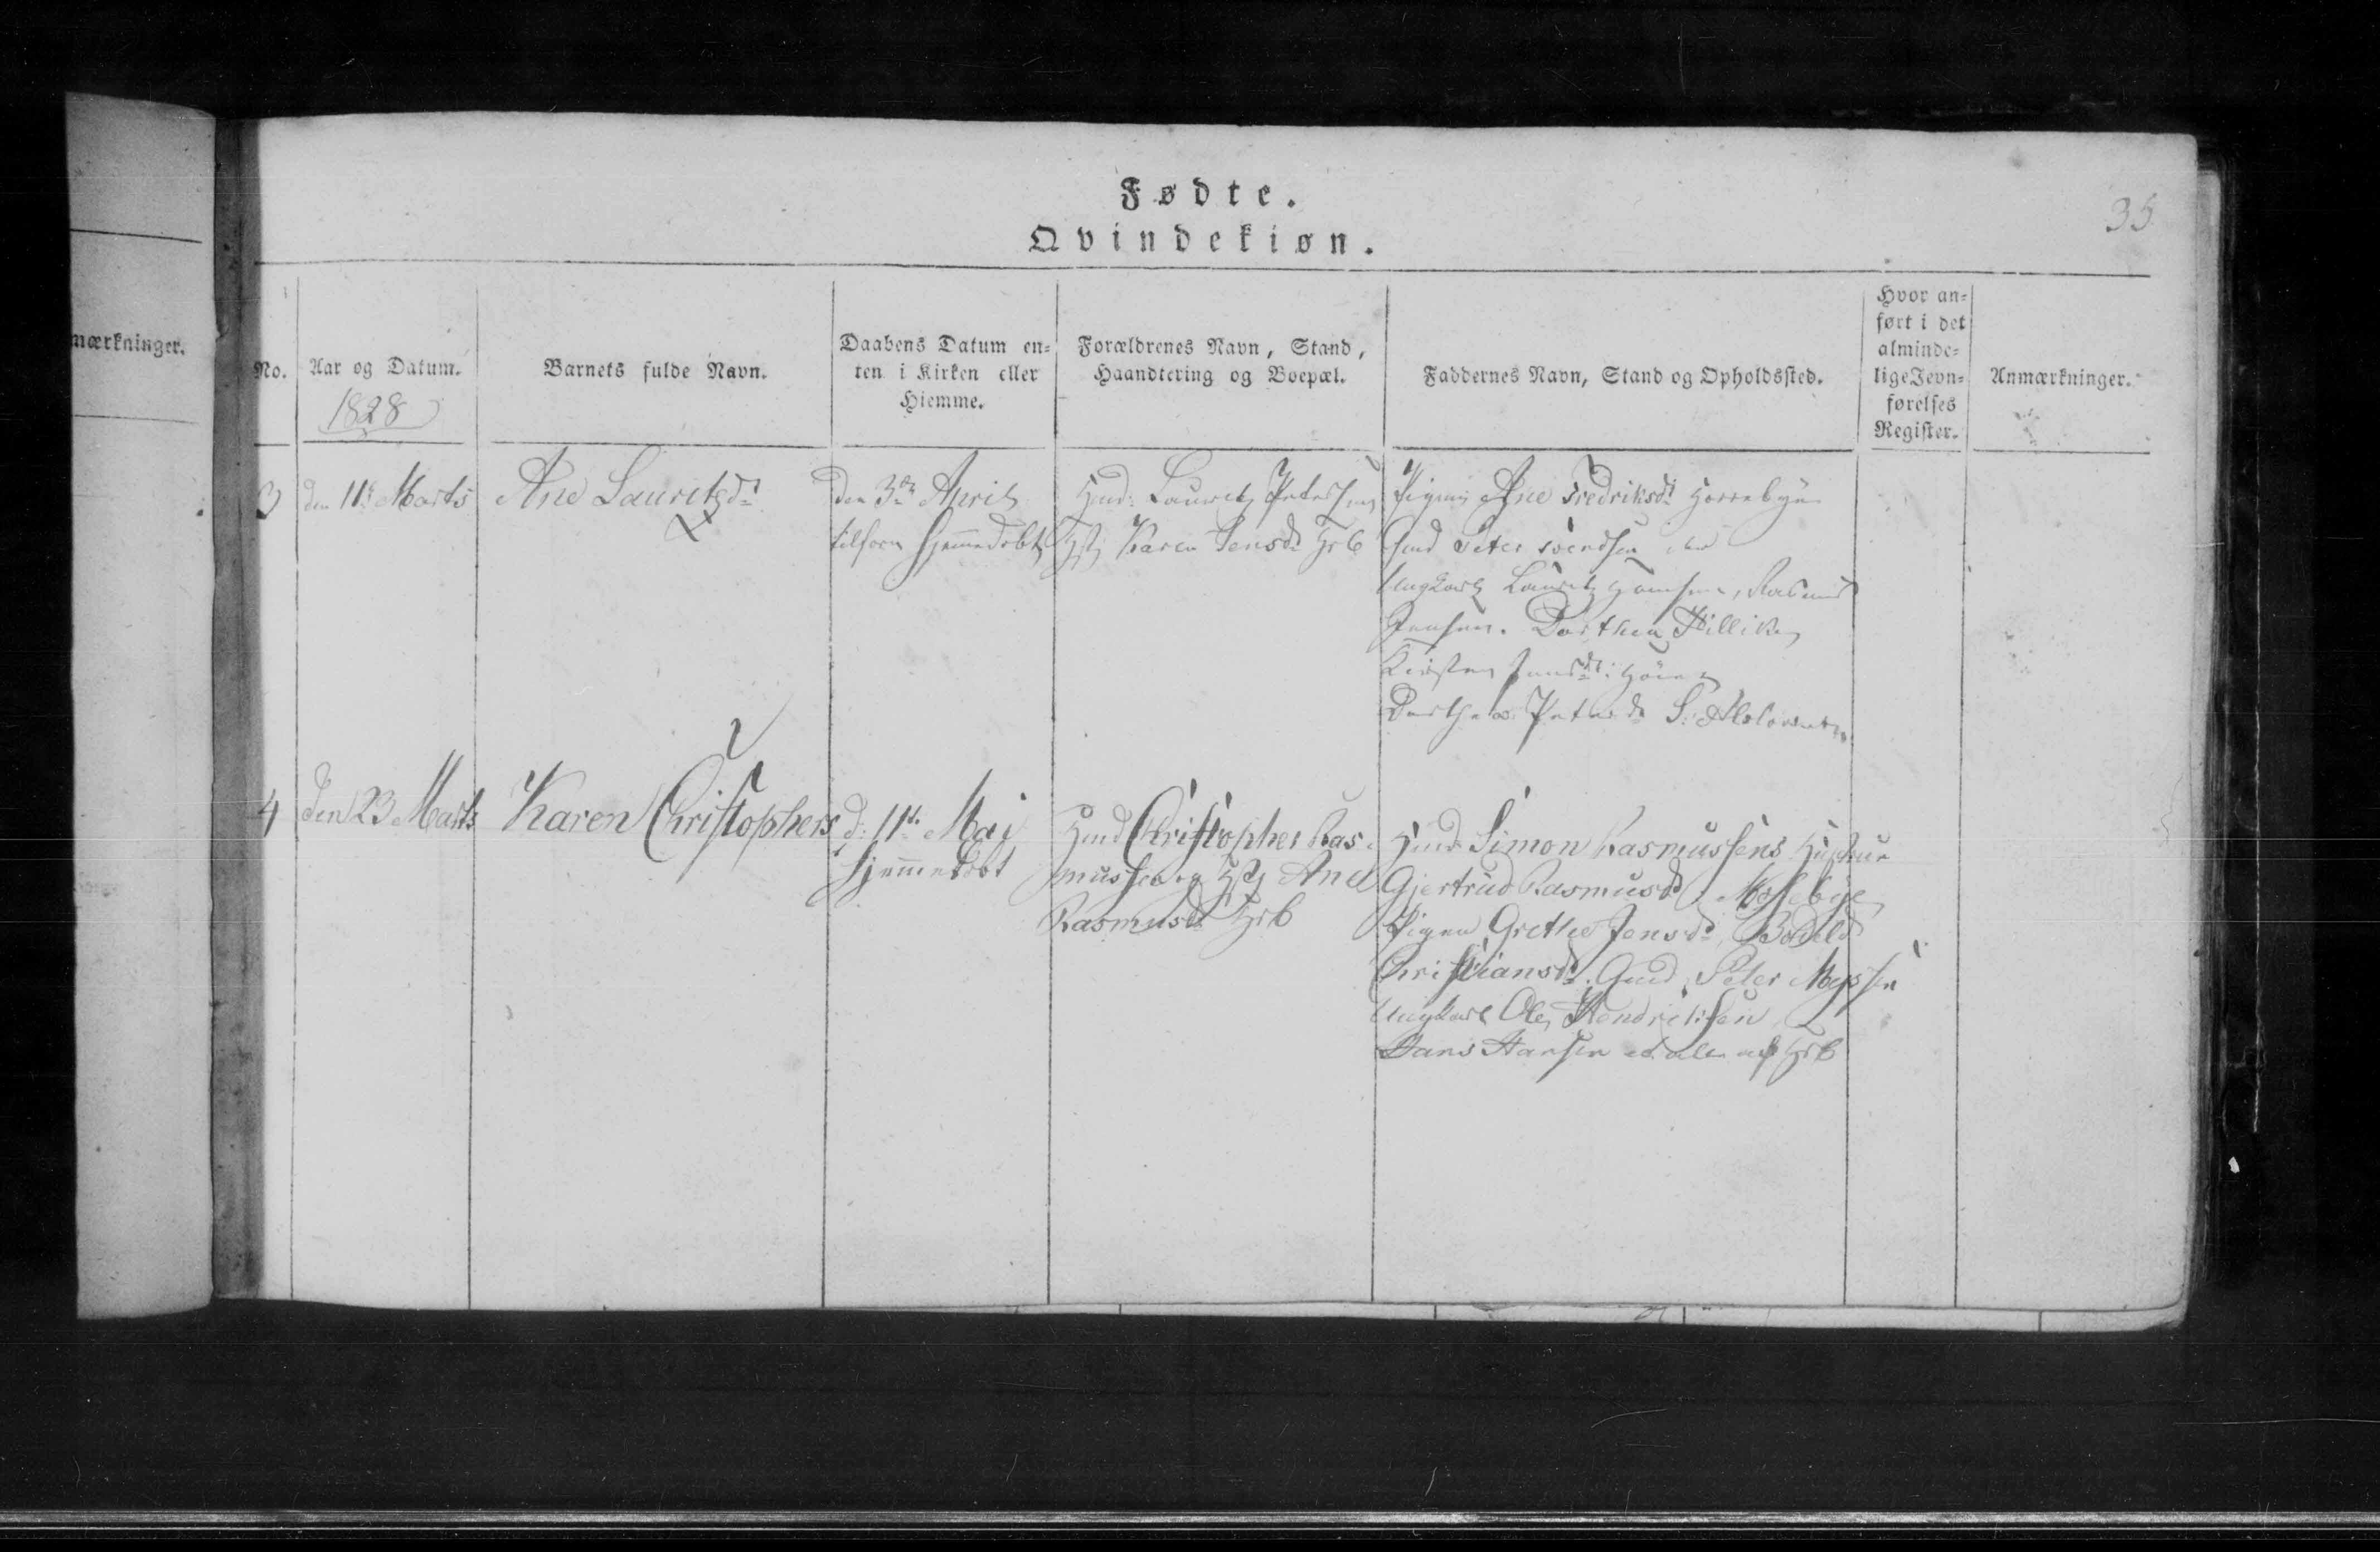 Fødte.
Qvindekiøn.
35
mærkninger.
No.
Aar og Datum.
1828
Barnets fulde Navn.
Daabens Datum en-
ten i Kirken eller
Hiemme.
Forældrenes Navn, Stand,
Haandtering og Boepæl.
Faddernes Navn, Stand og Opholdssted.
Hvor an-
ført i det
alminde-
lige Jevn-
førelses
Register.
Anmærkninger.
3
den 11te Marts
Ane Lauritsd:
den 3die April
tilforn hjemmedøbt
Huusd: Lauritz Petersen
Karen Jensd: Hrb
Pigen Ane Fredriksd: Horrebye
Peter Svendsen
Ungkarl Lauritz Hansen, Rasmus
Jensen. Dorthea Willik
Kirsten
Dorthea Petersd:
4
den 23 Marts
Karen Christophers
d: 11te Mai
hjemmedøbt
Huusd Christopher Ras-
mussen og Hst Ane
Rasmusd Hrb
Huusd: Simon Rasmussens Hustrue
Gjertrud Rasmusd:
Pigen Grethe Jensd: Bodeld
Christiansd: Gmd Peter
Ungkarl Ole Hendriksen
Hans Hansen alle af Hrb